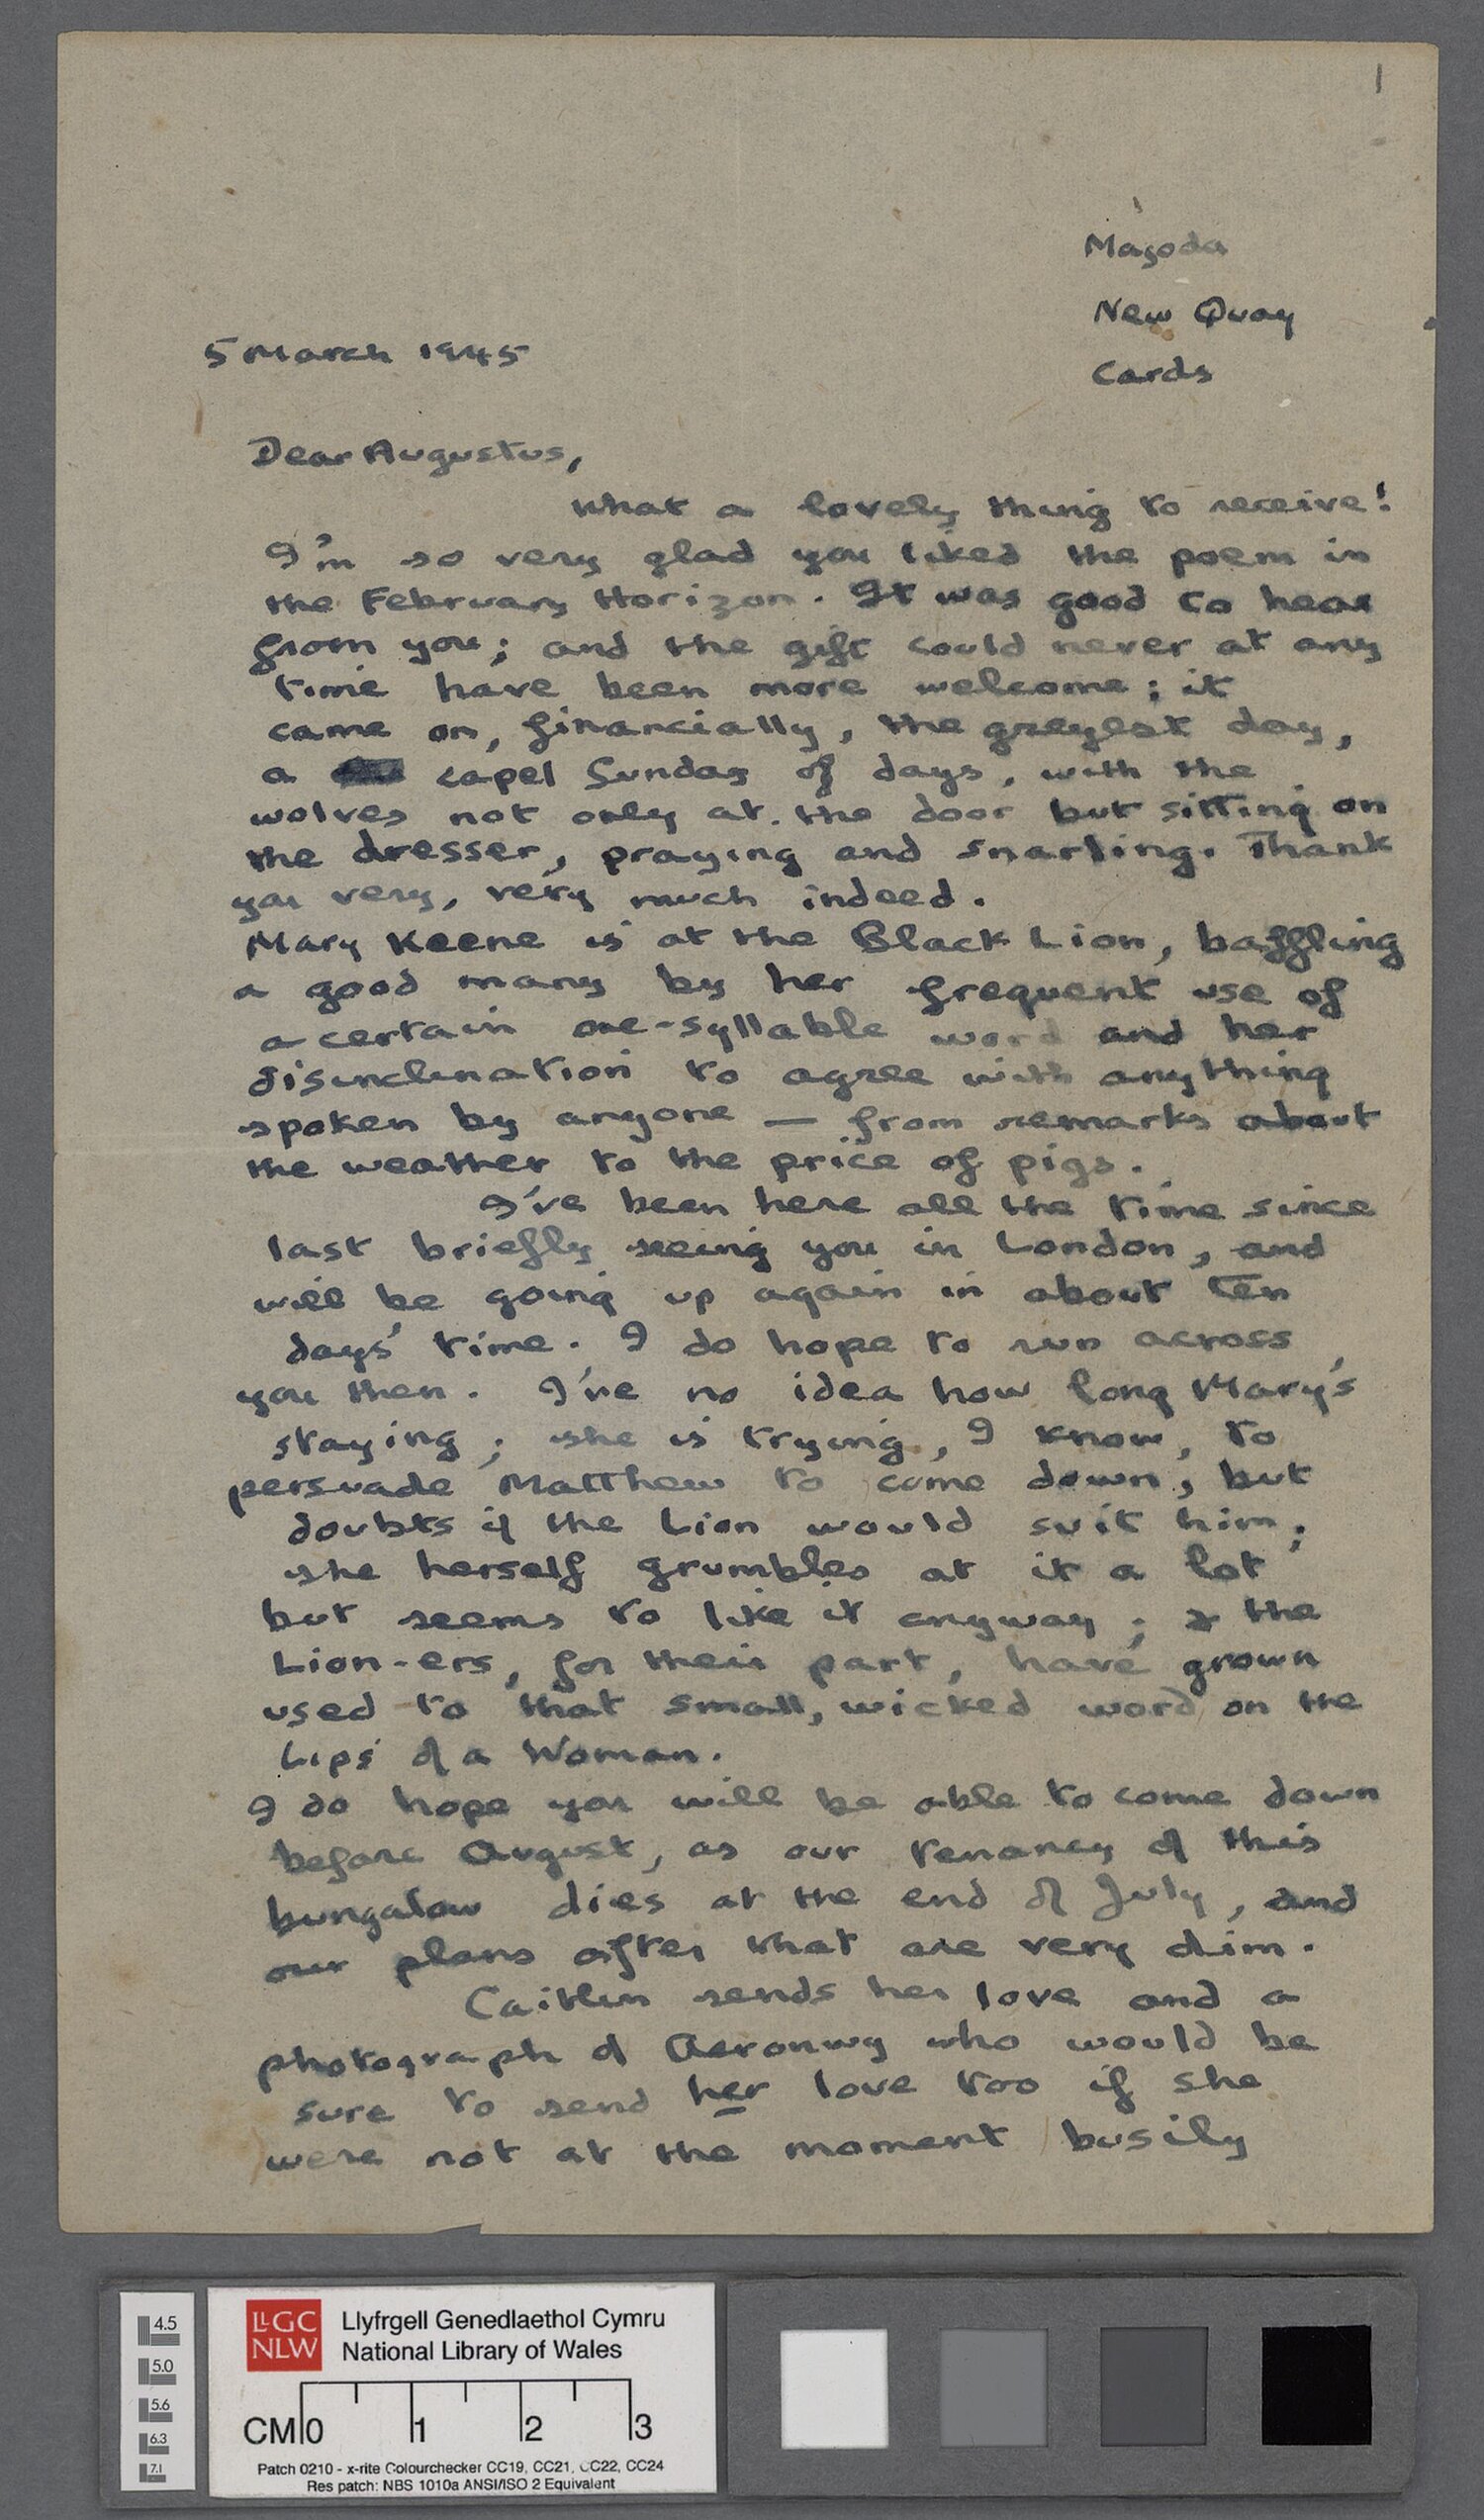 1
Magoda
New Quay
5 March 1945
Cards
Dear Augustus,
What a lovely thing to receive!
I'm so very glad you liked the poem in
the February Horizon. It was good to hear
from you; and the gift could never at any
time have been more welcome; it
came on, financially, the greyest day,
a capel Sunday of days, with the
wolves not only at the door but sitting on
the dresser, praying and snarling. Thank
you very, very much indeed.
Mary Keene is at the Black Lion, baffling
a good many by her frequent use of
a certain one-syllable word and her
disinclination to agree with anything
spoken by anyone — from remarks about
the weather to the price of pigs.
I've been here all the time since
last briefly seeing you in London, and
will be going up again in about ten
days' time. I do hope to run across
you then. I've no idea how long Mary's
staying; she is trying, I know, to
persuade Matthew to come down, but
doubts if the Lion would suit him;
she herself grumbles at it a lot
but seems to like it anyway; & the
Lion-ers, for their part, have grown
used to that small, wicked word on the
Lips of a Woman.
I do hope you will be able to come down
before August, as our tenancy of this
bungalow dies at the end of July, and
our plans after that are very dim.
Caitlin sends her love and a
photograph of Aeronwy who would be
sure to send her love too if she
were not at the moment busily
4.5
5.0
5.6
6.3
7.1
LLGC
NLW
Llyfrgell Genedlaethol Cymru
National Library of Wales
CM 0 1 2 3
Patch 0210 - x-rite Colourchecker CC19, CC21, CC22, CC24
Res patch: NBS 1010a ANSI/ISO 2 Equivalent